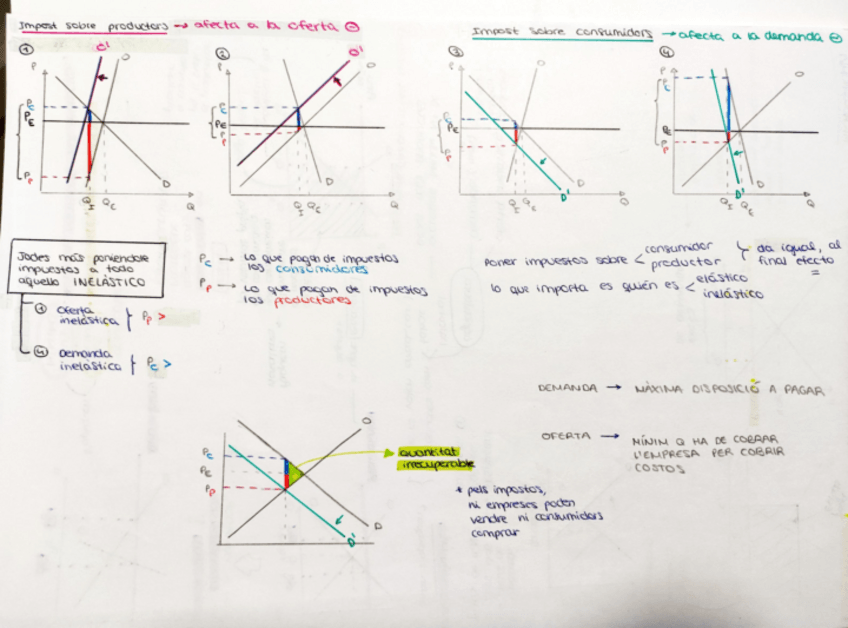 Impost sobre productors → afecta a la oferta ⊖
Impost sobre consumidors → afecta a la demanda ⊖
①
P
O'
O
Pc
PE
Pp
QI
QE
Q
D
②
P
O'
O
Pc
PE
Pp
QI
QE
Q
D
③
P
O
Pc
PE
Pp
QI
QE
Q
D
D'
④
P
O
Pc
Pp
QI
QE
Q
D
D'
Jodes más poniéndole
impuestos a todo
aquello INELÁSTICO
① Oferta
inelástica } Pp >
④ Demanda
inelástica } Pc >
Pc → Lo que pagan de impuestos
los consumidores
Pp → Lo que pagan de impuestos
los productores
Poner impuestos sobre < consumidor
productor } da igual, al
final efecto
=
lo que importa es quién es < elástico
inelástico
DEMANDA → MÀXIMA DISPOSICIÓ A PAGAR
OFERTA → MÍNIM Q HA DE COBRAR
L'EMPRESA PER COBRIR
COSTOS
Pc
PE
Pp
O
D
D'
quantitat
irrecuperable
* pels impostos,
ni empreses poden
vendre ni consumidors
comprar